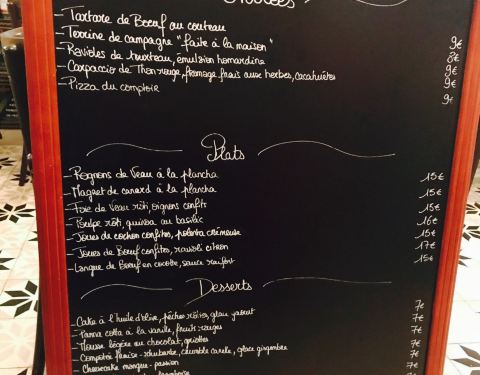 Tartare de Bœuf au couteau 9€
- Terrine de campagne "faite à la maison" 8€
- Ravioles de tourteau, émulsion homardine 9€
- Carpaccio de Thon rouge, fromage frais aux herbes, cacahuètes 9€
- Pizza du comptoir 9€
Plats
- Rognons de Veau à la plancha 15€
- Magret de canard à la plancha 15€
- Foie de Veau rôti, oignons confits 15€
- Poulpe rôti, quinoa au basilic 16€
- Joues de cochon confites, polenta crémeuse 15€
- Joues de Bœuf confites, ravioli citron 17€
- Langue de Bœuf en cocotte, sauce raifort 15€
Desserts
- Cake à l'huile d'olive, pêches rôties, glace yaourt 7€
- Panna cotta à la vanille, fruits rouges 7€
- Mousse légère au chocolat, griottes 7€
- Comptoir fraise-rhubarbe, crumble canelle, glace gingembre 7€
- Cheesecake mangue-passion 7€